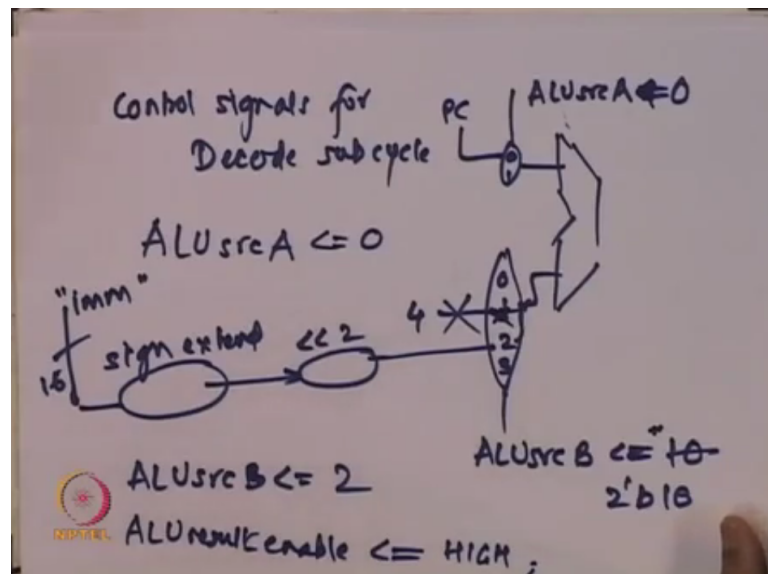 Control signals for
Decode subcycle
PC
ALUsrcA <= 0
0
1
ALUsrcA <= 0
"imm"
16
sign extend
<< 2
4
0
1
2
3
ALUsrcB <= "10
2'b10
ALUsrcB <= 2
ALUresult enable <= HIGH;
NPTEL